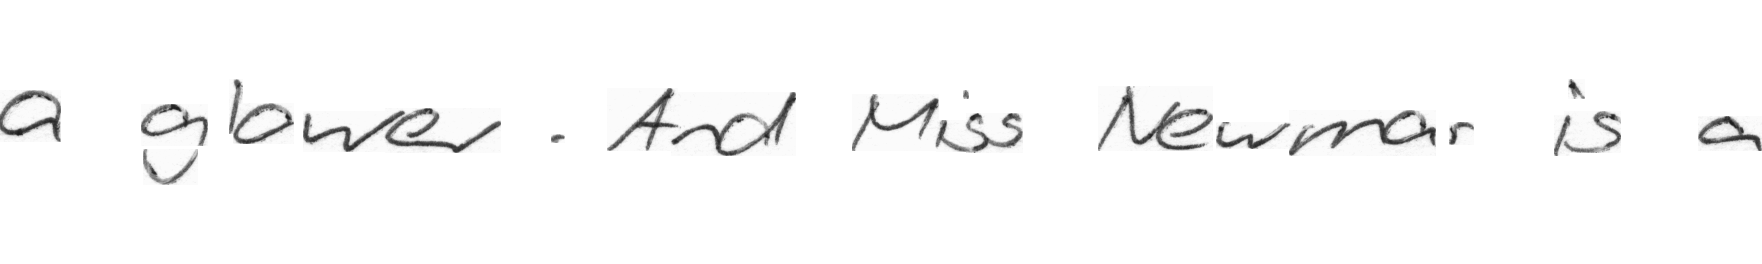 a glower. And Miss Newmar is a